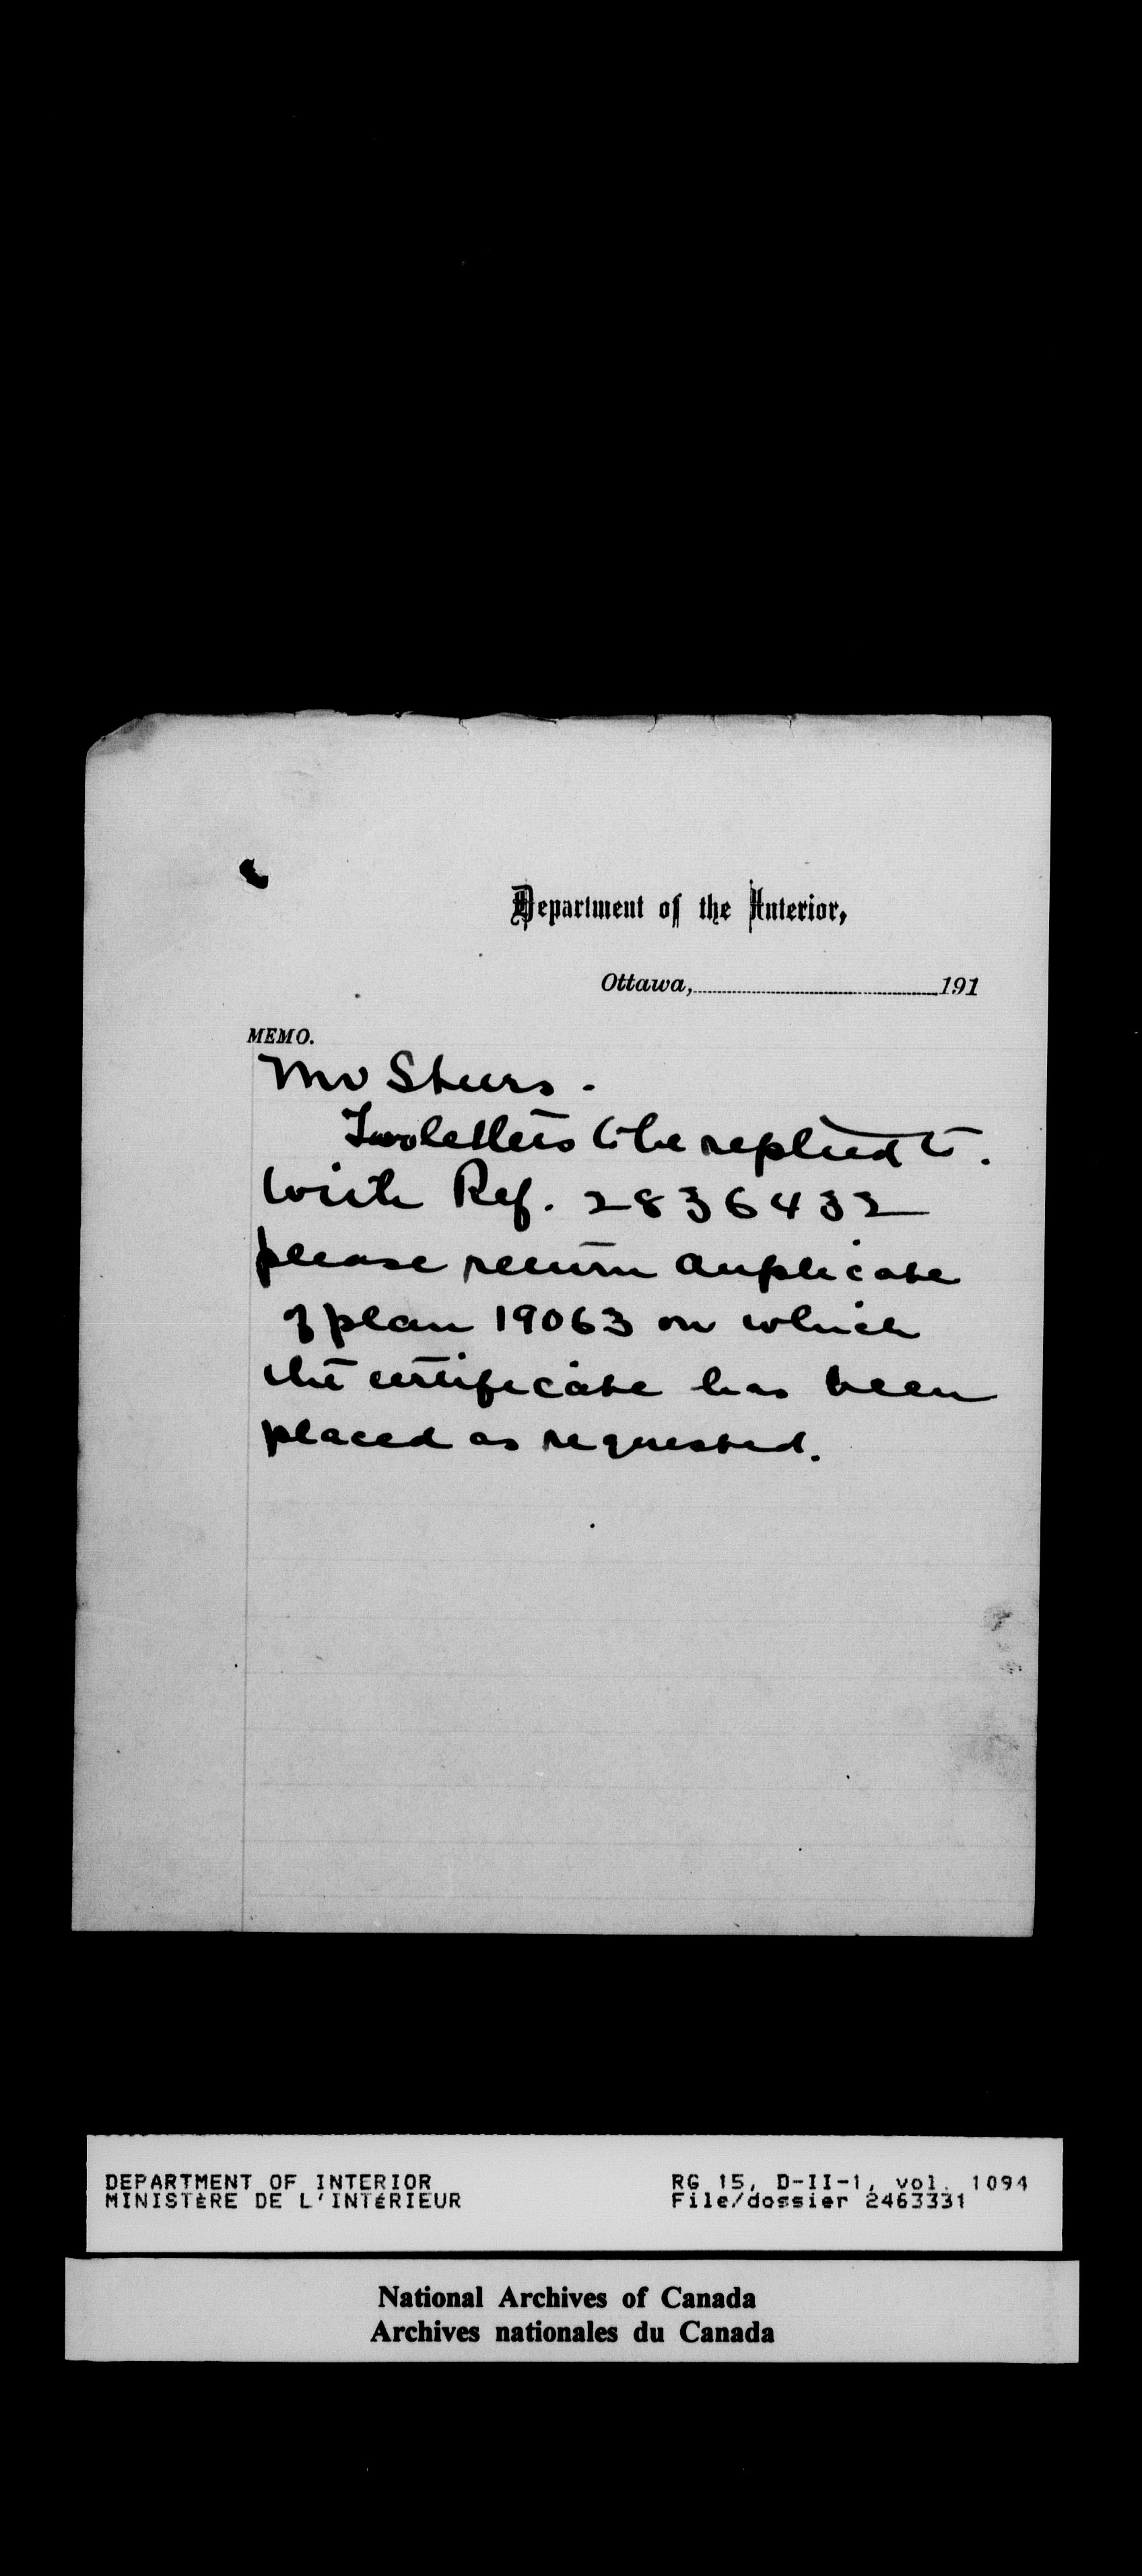 Department of the Interior,
Ottawa,..........191
MEMO.
Mr Steers.
Two letters to be replied to.
With Ref. 2836432
please return duplicate
of plan 19063 on which
the certificate has been
placed as requested.
DEPARTMENT OF INTERIOR RG 15, D-II-1, vol. 1094
MINISTÈRE DE L'INTÉRIEUR File/dossier 2463331
National Archives of Canada
Archives nationales du Canada